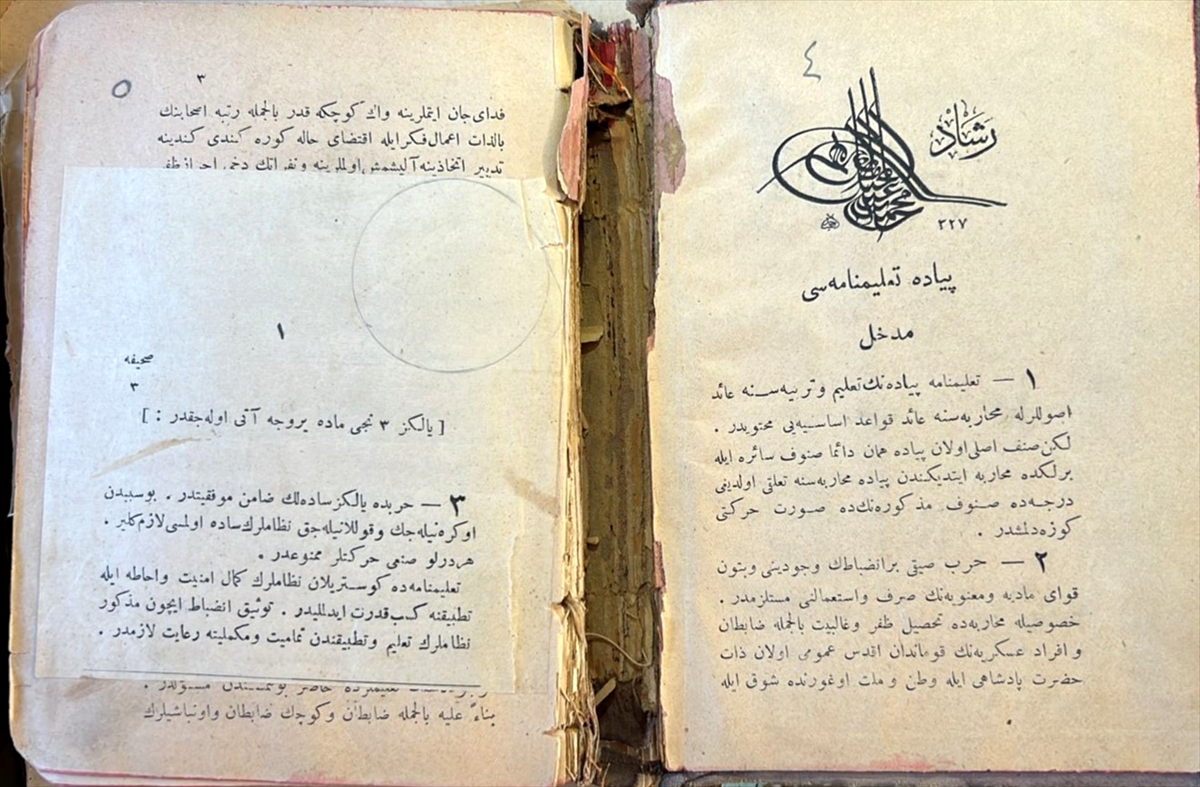 ٤
رشاد
٣٢٧
پیاده تعلیمنامه‌سی
مدخل
١ — تعلیمنامه پیاده‌نك تعلیم و تربیه‌سنه عائد
اصوللرله محاربه‌سنه عائد قواعد اساسیه‌یی محتویدر .
لكن صنف اصلی اولان پیاده همان دائما صنوف سائره ایله
برلكده محاربه ایتدیكندن پیاده محاربه‌سنه تعلقی اولدیغی
درجه‌ده صنوف مذكوره‌نك‌ده صورت حركتی
كوزه‌دلمشدر .
٢ — حرب صیقی بر انضباطك وجودینی و بتون
قوای مادیه و معنویه‌نك صرف و استعمالنی مستلزمدر .
خصوصیله محاربه‌ده تحصیل ظفر و غالبیت بالجمله ضابطان
و افراد عسكریه‌نك قوماندان اقدس عمومی اولان ذات
حضرت پادشاهی ایله وطن و ملت اوغورنده شوق ایله
٥
٣
فدای جان ایتملرینه واك كوچكه قدر بالجمله رتبه اصحابنك
بالذات اعمال فكر ایله اقتضای حاله كوره كندی كندینه
تدبیر اتخاذینه آلیشمش اولملرینه و نفراتك دخی احراز ظفر
١
صحیفه
٣
[ یالكز ٣ نجی ماده بروجه آتی اوله‌جقدر : ]
٣ — حربده یالكز ساده‌لك ضامن موفقیتدر . بوسببدن
اوكره‌نیله‌جك و قوللانیله‌جق نظاملرك ساده اولمسی لازم‌كلیر .
هر درلو صنعی حركتلر ممنوعدر .
تعلیمنامه‌ده كوستریلان نظاملرك كمال امنیت و احاطه ایله
تطبیقنه كسب قدرت ایدلملیدر . توثیق انضباط ایچون مذكور
نظاملرك تعلیم و تطبیقندن تمامیت و مكملیته رعایت لازمدر .
بناءً علیه بالجمله ضابطان و كوچك ضابطان و اونباشیلرك